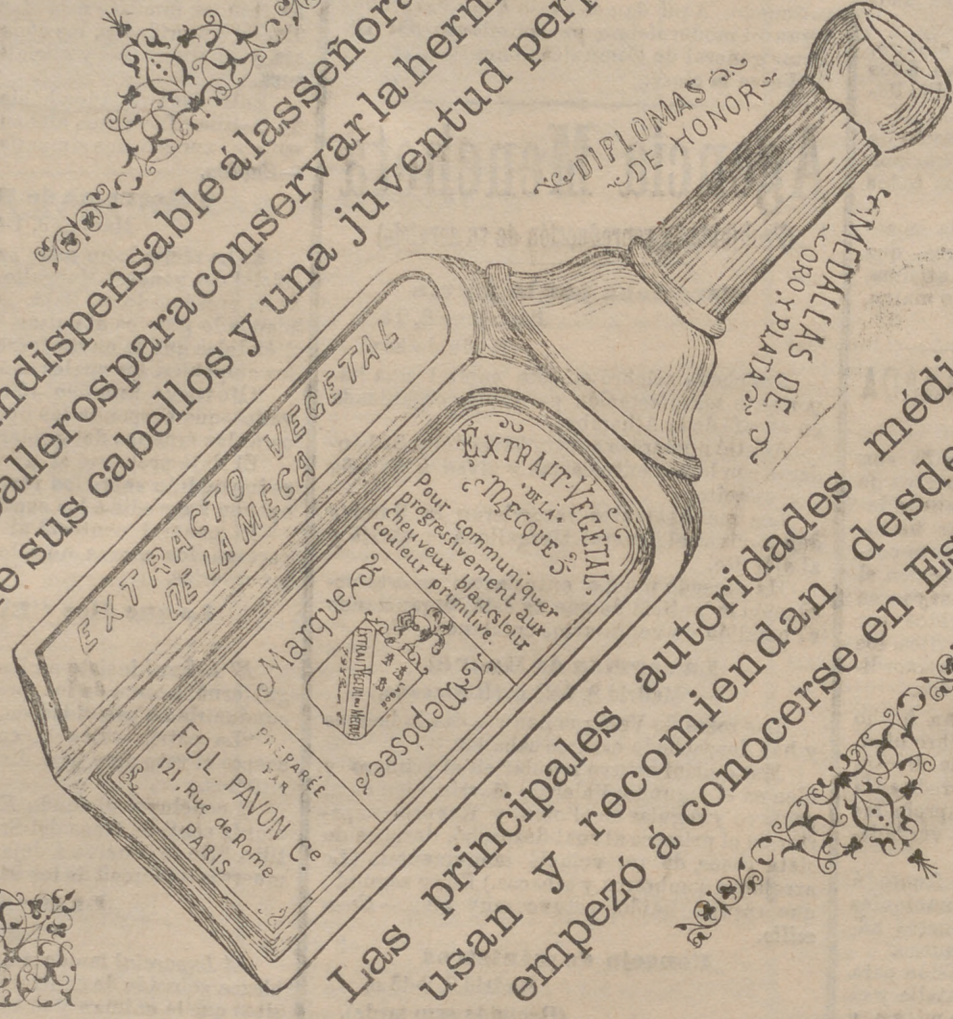 indispensable á las señora
para conservar la herm
sus cabellos y una juventud
DIPLOMAS
DE HONOR
MEDALLAS DE
ORO, Y PLATA
EXTRACTO VEGETAL
DE LA MECA
EXTRAIT-VEGETAL
DE LA
MECQUE
Pour communiquer
progressivement aux
cheuveux blancsleur
couleur primitive.
Marque
Déposée
PREPARÉE
PAR
F.D.L. PAVON Ce.
121, Rue de Rome
PARIS
Las principales autoridades médi
usan y recomiendan desde
empezó á conocerse en Es